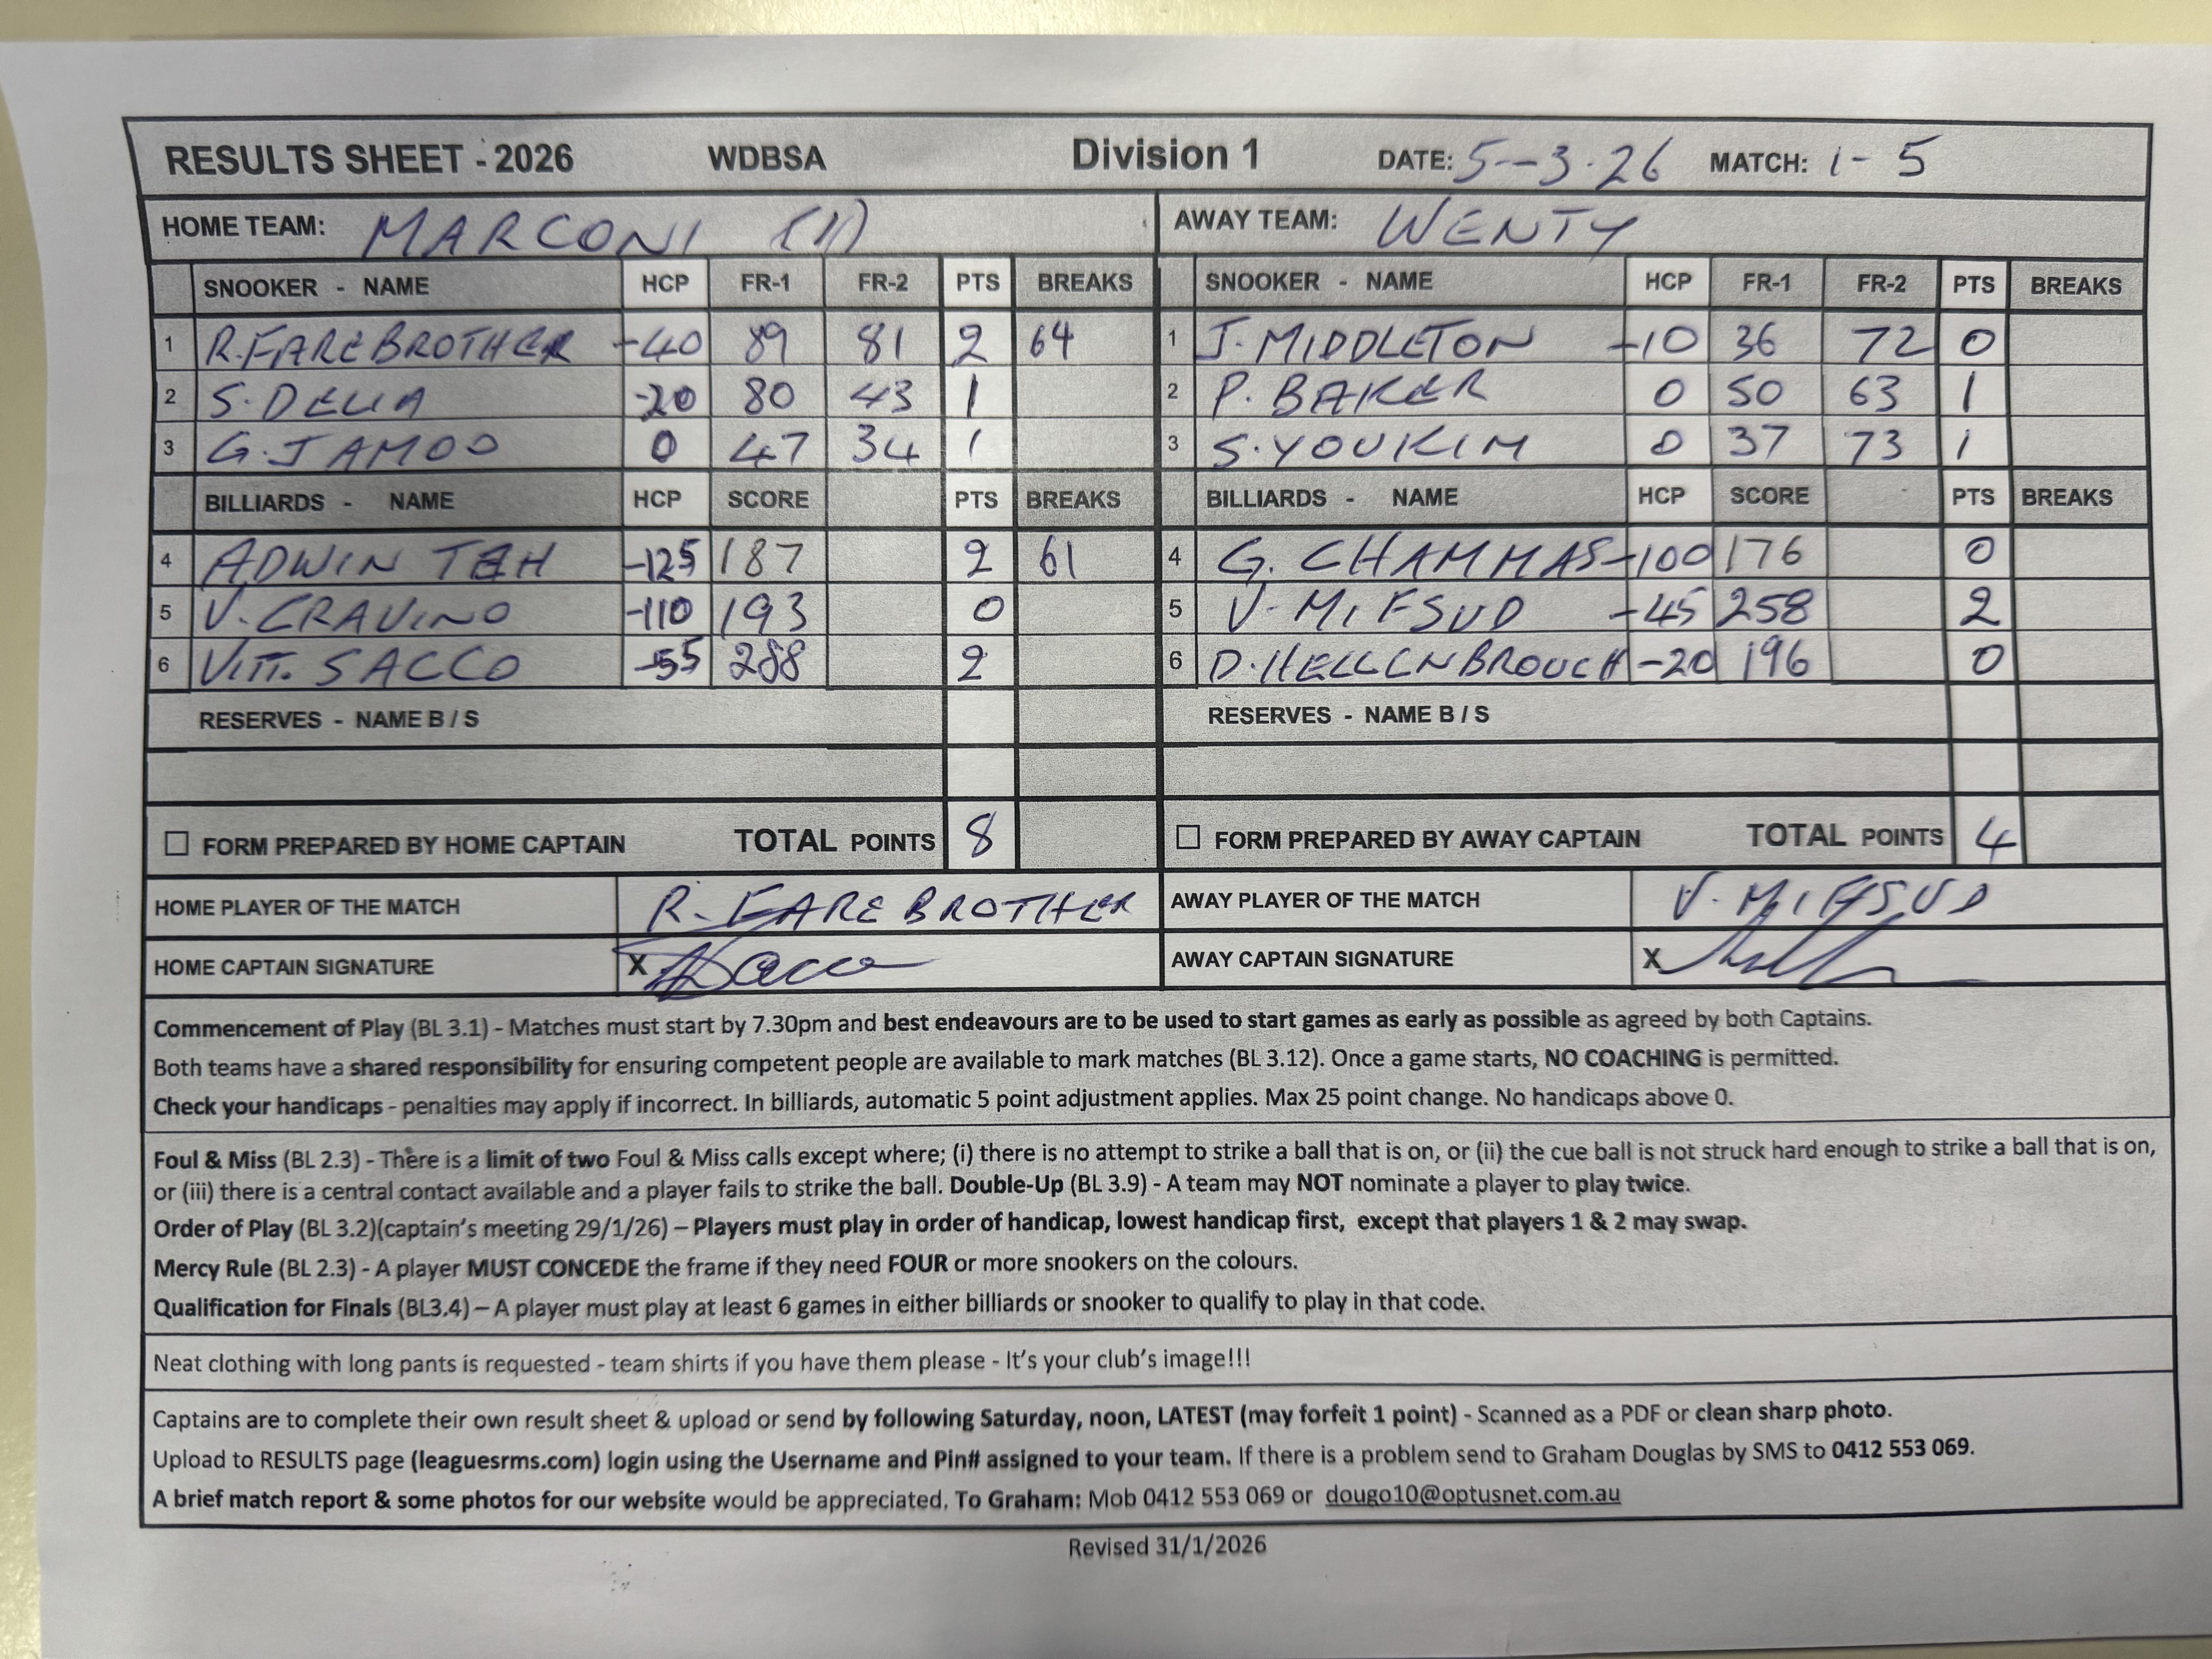 RESULTS SHEET - 2026 WDBSA Division 1 DATE: 5-3.26 MATCH: 1-5
HOME TEAM: MARCONI (11) AWAY TEAM: WENTY
SNOOKER - NAME HCP FR-1 FR-2 PTS BREAKS SNOOKER - NAME HCP FR-1 FR-2 PTS BREAKS
1 R.FAREBROTHER -40 89 81 2 64 1 J.MIDDLETON -10 36 72 0
2 S.DELIA -20 80 43 1 2 P. BAKER 0 50 63 1
3 G.JAMOO 0 47 34 1 3 S.YOUKIM 0 37 73 1
BILLIARDS - NAME HCP SCORE PTS BREAKS BILLIARDS - NAME HCP SCORE PTS BREAKS
4 ADWIN TEH -125 187 2 61 4 G. CHAMMAS -100 176 0
5 V.CRAVINO -110 193 0 5 V-MIFSUD -45 258 2
6 VITT. SACCO -55 288 2 6 D.HELLENBROUCH -20 196 0
RESERVES - NAME B / S RESERVES - NAME B / S
FORM PREPARED BY HOME CAPTAIN TOTAL POINTS 8 FORM PREPARED BY AWAY CAPTAIN TOTAL POINTS 4
HOME PLAYER OF THE MATCH R. FAREBROTHER AWAY PLAYER OF THE MATCH V. MIFSUD
HOME CAPTAIN SIGNATURE X Sacco AWAY CAPTAIN SIGNATURE X
Commencement of Play (BL 3.1) - Matches must start by 7.30pm and best endeavours are to be used to start games as early as possible as agreed by both Captains.
Both teams have a shared responsibility for ensuring competent people are available to mark matches (BL 3.12). Once a game starts, NO COACHING is permitted.
Check your handicaps - penalties may apply if incorrect. In billiards, automatic 5 point adjustment applies. Max 25 point change. No handicaps above 0.
Foul & Miss (BL 2.3) - There is a limit of two Foul & Miss calls except where; (i) there is no attempt to strike a ball that is on, or (ii) the cue ball is not struck hard enough to strike a ball that is on,
or (iii) there is a central contact available and a player fails to strike the ball. Double-Up (BL 3.9) - A team may NOT nominate a player to play twice.
Order of Play (BL 3.2)(captain's meeting 29/1/26) – Players must play in order of handicap, lowest handicap first, except that players 1 & 2 may swap.
Mercy Rule (BL 2.3) - A player MUST CONCEDE the frame if they need FOUR or more snookers on the colours.
Qualification for Finals (BL3.4) – A player must play at least 6 games in either billiards or snooker to qualify to play in that code.
Neat clothing with long pants is requested - team shirts if you have them please - It's your club's image!!!
Captains are to complete their own result sheet & upload or send by following Saturday, noon, LATEST (may forfeit 1 point) - Scanned as a PDF or clean sharp photo.
Upload to RESULTS page (leaguesrms.com) login using the Username and Pin# assigned to your team. If there is a problem send to Graham Douglas by SMS to 0412 553 069.
A brief match report & some photos for our website would be appreciated. To Graham: Mob 0412 553 069 or dougo10@optusnet.com.au
Revised 31/1/2026